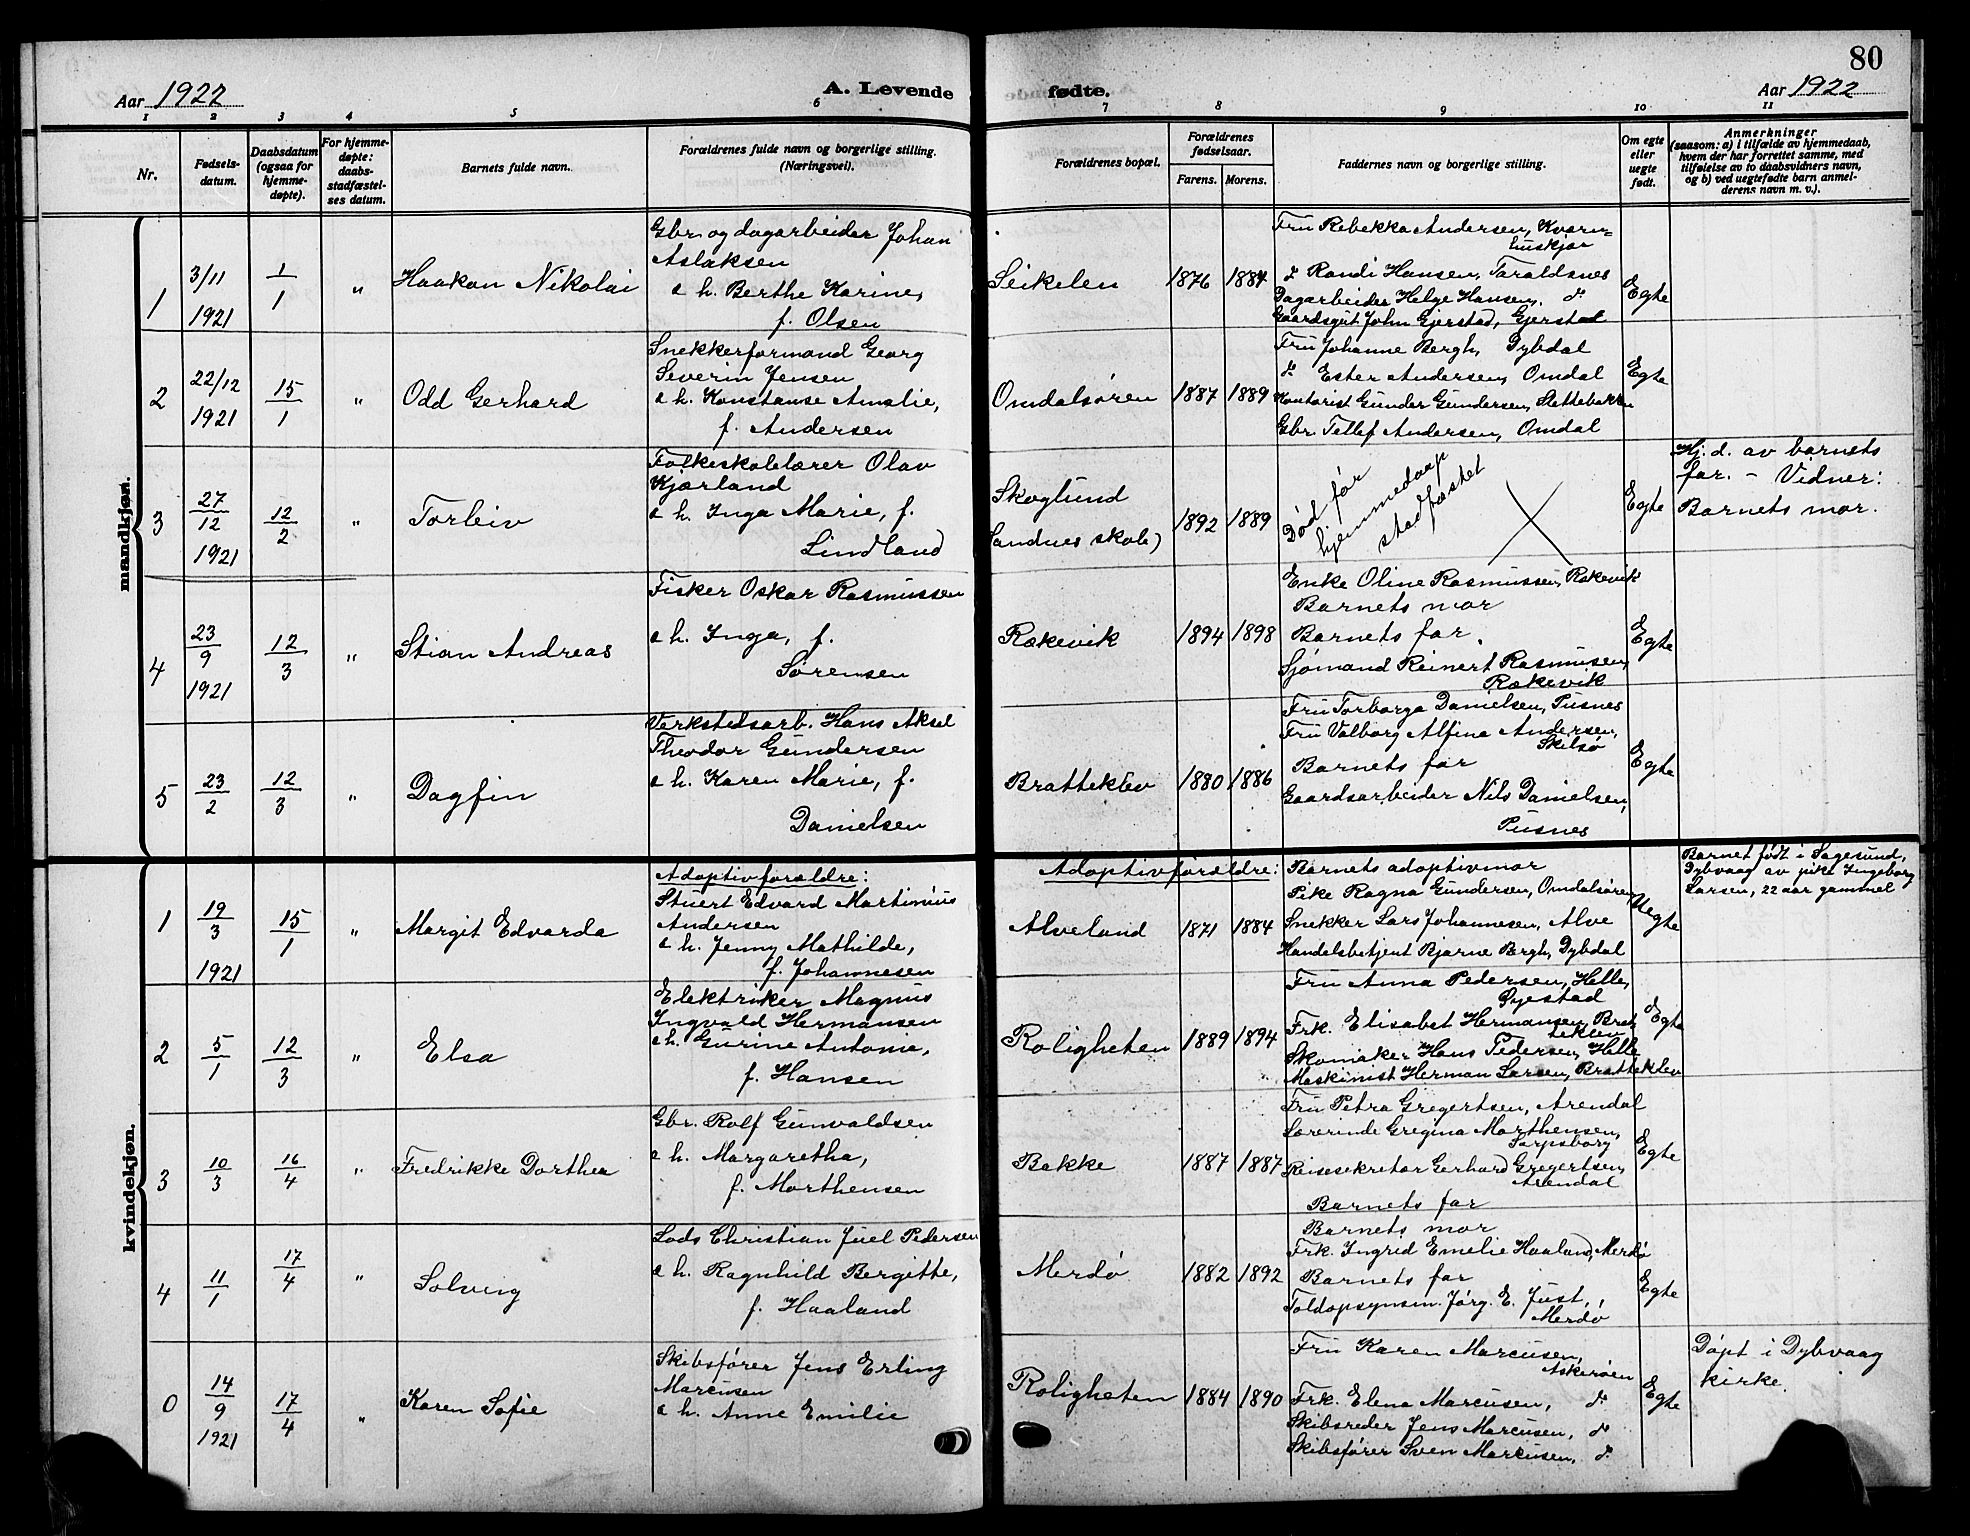 80
Aar 1922
A. Levende
fødte.
Aar 1922
1 2 3 4 5 6 7 8 9 10 11
Nr.
Fødsels-
datum.
Daabsdatum
(ogsaa for
hjemme-
døpte).
For hjemme-
døpte:
daabs-
stadfæstel-
ses datum.
Barnets fulde navn.
Forældrenes fulde navn og borgerlige stilling.
(Næringsvei).
Forældrenes bopæl.
Forældrenes
fødselsaar.
Farens. Morens.
Faddernes navn og borgerlige stilling.
Om egte
eller
uegte
født.
Anmerkninger
(saasom: a) i tilfælde av hjemmedaab,
hvem der har forrettet samme, med
tilføielse av to daabsvidners navn,
og b) ved uegtefødte barn anmel-
derens navn m. v.).
mandkjøn.
1
3/11
1921
1/1
"
Haakon Nikolai
Gbr. og dagarbeider Johan
Aslaksen
o h. Berthe Karine,
f. Olsen
Seikelen
1876 1884
Fru Rebekka Andersen, Kvarn-
huskjær
d° Randi Hansen, Taraldsnes
Dagarbeider Helge Hansen, d°
Gaardsgut John Gjerstad, Gjerstad
Egte
2
22/12
1921
15/1
"
Odd Gerhard
Snekkerformand Georg
Severin Jensen
o h. Konstanse Amalie,
f. Andersen
Omdalsøren
1887 1889
Fru Johanne Bergh, Dybdal
d° Ester Andersen, Omdal
Kontorist Gunder Gundersen, Slettebakken
Gbr. Tellef Andersen, Omdal
Egte
3
27/12
1921
12/2
"
Torleiv
Folkeskolelærer Olav
Kjærland
o h. Inga Marie, f.
Lindland
Skoglund
Sandnes skole)
1892 1889
Død før
hjemmedaap
stadfæstet
Egte
Hj. d. av barnets
far. - Vidner:
Barnets mor.
4
23/9
1921
12/3
"
Stian Andreas
Fisker Oskar Rasmussen
o h. Inga, f.
Sørensen
Rækevik
1894 1898
Enke Oline Rasmussen, Rækevik
Barnets mor
Barnets far.
Sjømand Reinert Rasmussen,
Rækevik
Egte
5
23/2
12/3
"
Dagfin
Verkstedsarb. Hans Aksel
Theodor Gundersen
o h. Karen Marie, f.
Danielsen
Bratteklev
1880 1886
Fru Torborga Danielsen, Pusnes
Fru Valborg Alfina Andersen,
Skilsø
Barnets far
Gaardsarbeider Nils Danielsen,
Pusnes
Egte
kvindekjøn.
1
19/3
1921
15/1
"
Margit Edvarda
Adoptivforældre:
Stuert Edvard Martinius
Andersen
o h. Jenny Mathilde,
f. Johannesen
Adoptivforældre:
Alveland
1871 1884
Barnets adoptivmor
Pike Ragna Gundersen, Omdalsøren
Snekker Lars Johannesen, Alve
Handelsbetjent Bjarne Bergh, Dybdal
Uegte
Barnet født i Sagesund,
Dybvaag av pike Ingeborg
Larsen, 22 aar gammel
2
5/1
12/3
"
Elsa
Elektriker Magnus
Ingvald Hermansen
o h. Gurine Antonie,
f. Hansen
Roligheten
1889 1894
Fru Anna Pedersen, Helle,
Øyestad
Frk. Elisabet Hermansen, Brat-
teklev
Skomaker Hans Pedersen, Helle
Maskinist Herman Larsen, Bratteklev
Egte
3
10/3
16/4
"
Fredrikke Dorthea
Gbr. Rolf Gunvaldsen
o h. Margaretha,
f. Morthensen
Bakke
1887 1887
Fru Petra Gregertsen, Arendal
Lærerinde Gregina Morthensen,
Sarpsborg
Reisesekretær Gerhard Gregertsen,
Arendal
Barnets far
Egte
4
11/1
17/4
"
Solveig
Lods Christian Juel Pedersen
o h. Ragnhild Bergitte,
f. Haaland
Merdø
1882 1892
Barnets mor
Frk. Ingrid Emelie Haaland, Merdø
Barnets far
Toldopsynsm. Jørg. E. Just,
Merdø
Egte
0
14/9
1921
17/4
"
Karen Sofie
Skibsfører Jens Erling
Marcusen
o h. Anne Emilie
Roligheten
1884 1890
Fru Karen Marcusen,
Askerøen
Frk. Elena Marcusen, d°
Skibsreder Jens Marcusen, d°
Skibsfører Sven Marcusen, d°
Egte
Døpt i Dybvaag
kirke.